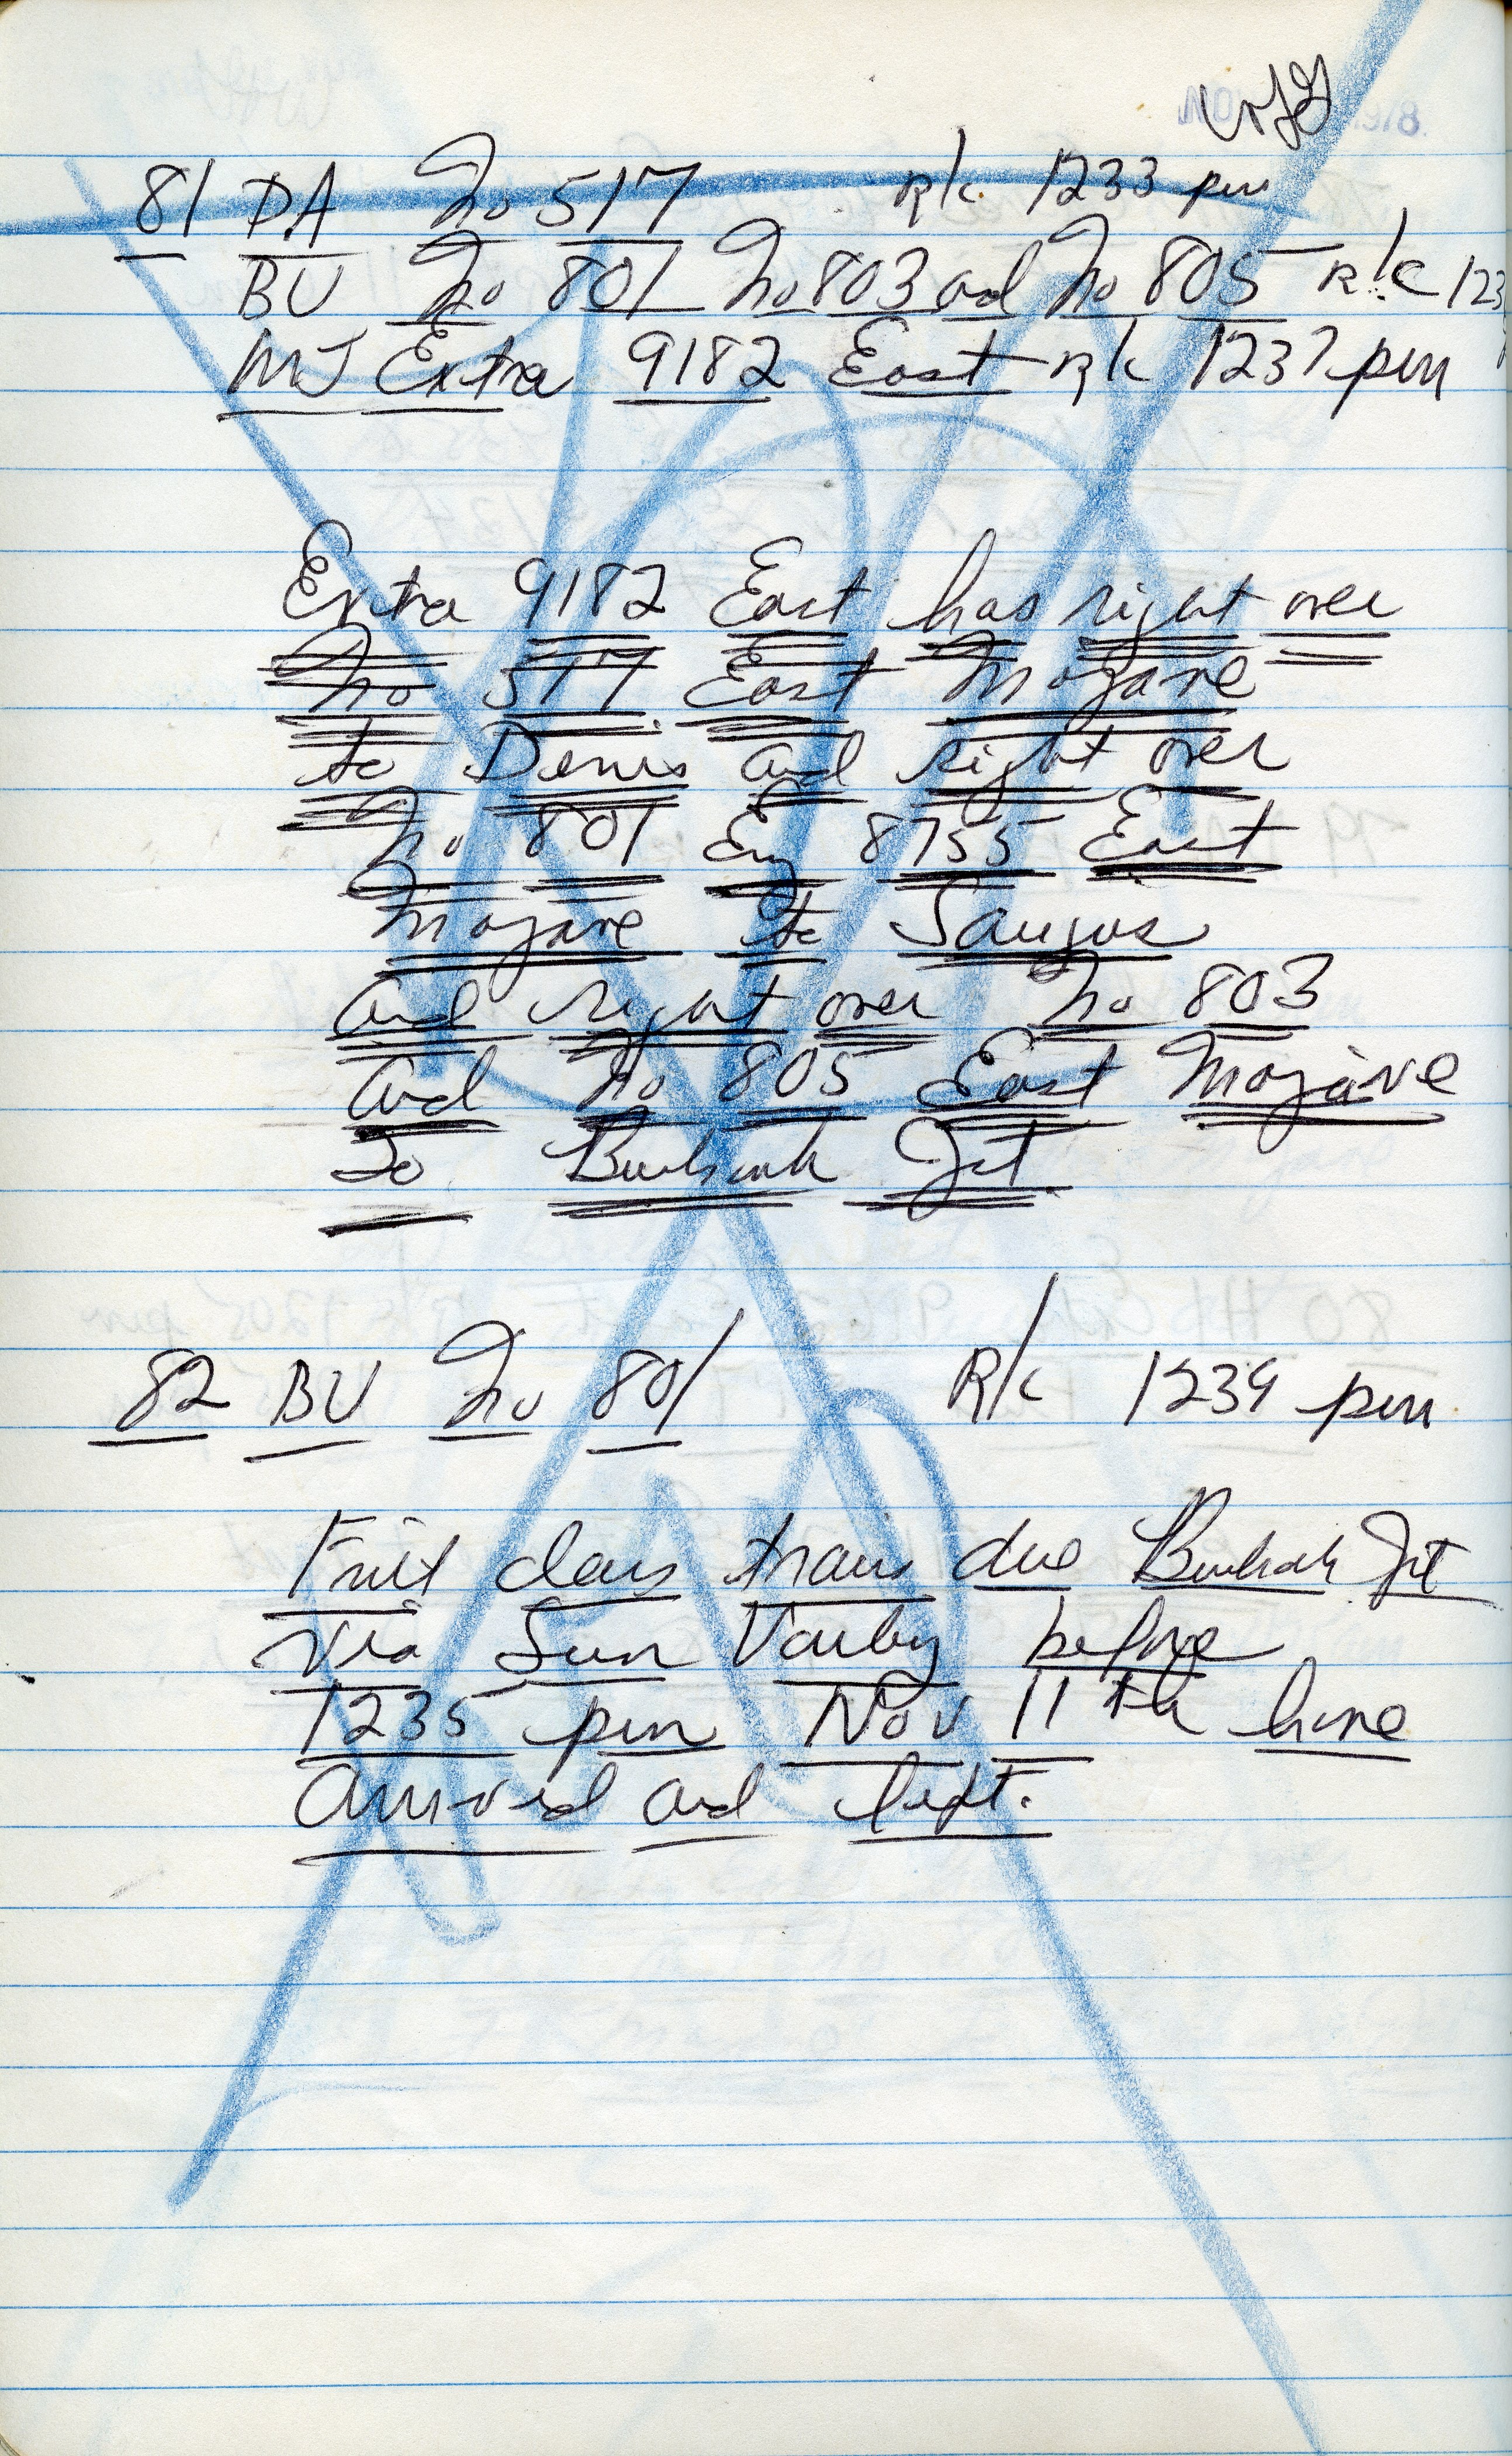 WJG
81 DA No 517 R/c 1233 pm
BU No 801 No 803 and No 805 R/c 123
MJ Extra 9182 East R/c 1237 pm
Extra 9182 East has right over
No 517 East Mojave
to Denis and right over
No 801 Eng 8755 East
Mojave to Saugus
and right over No 803
and No 805 East Mojave
to Burbank Jct
82 BU No 801 R/c 1234 pm
First class trains due Burbank Jct
via Sun Valley before
1235 pm Nov 11th have
arrived and left.